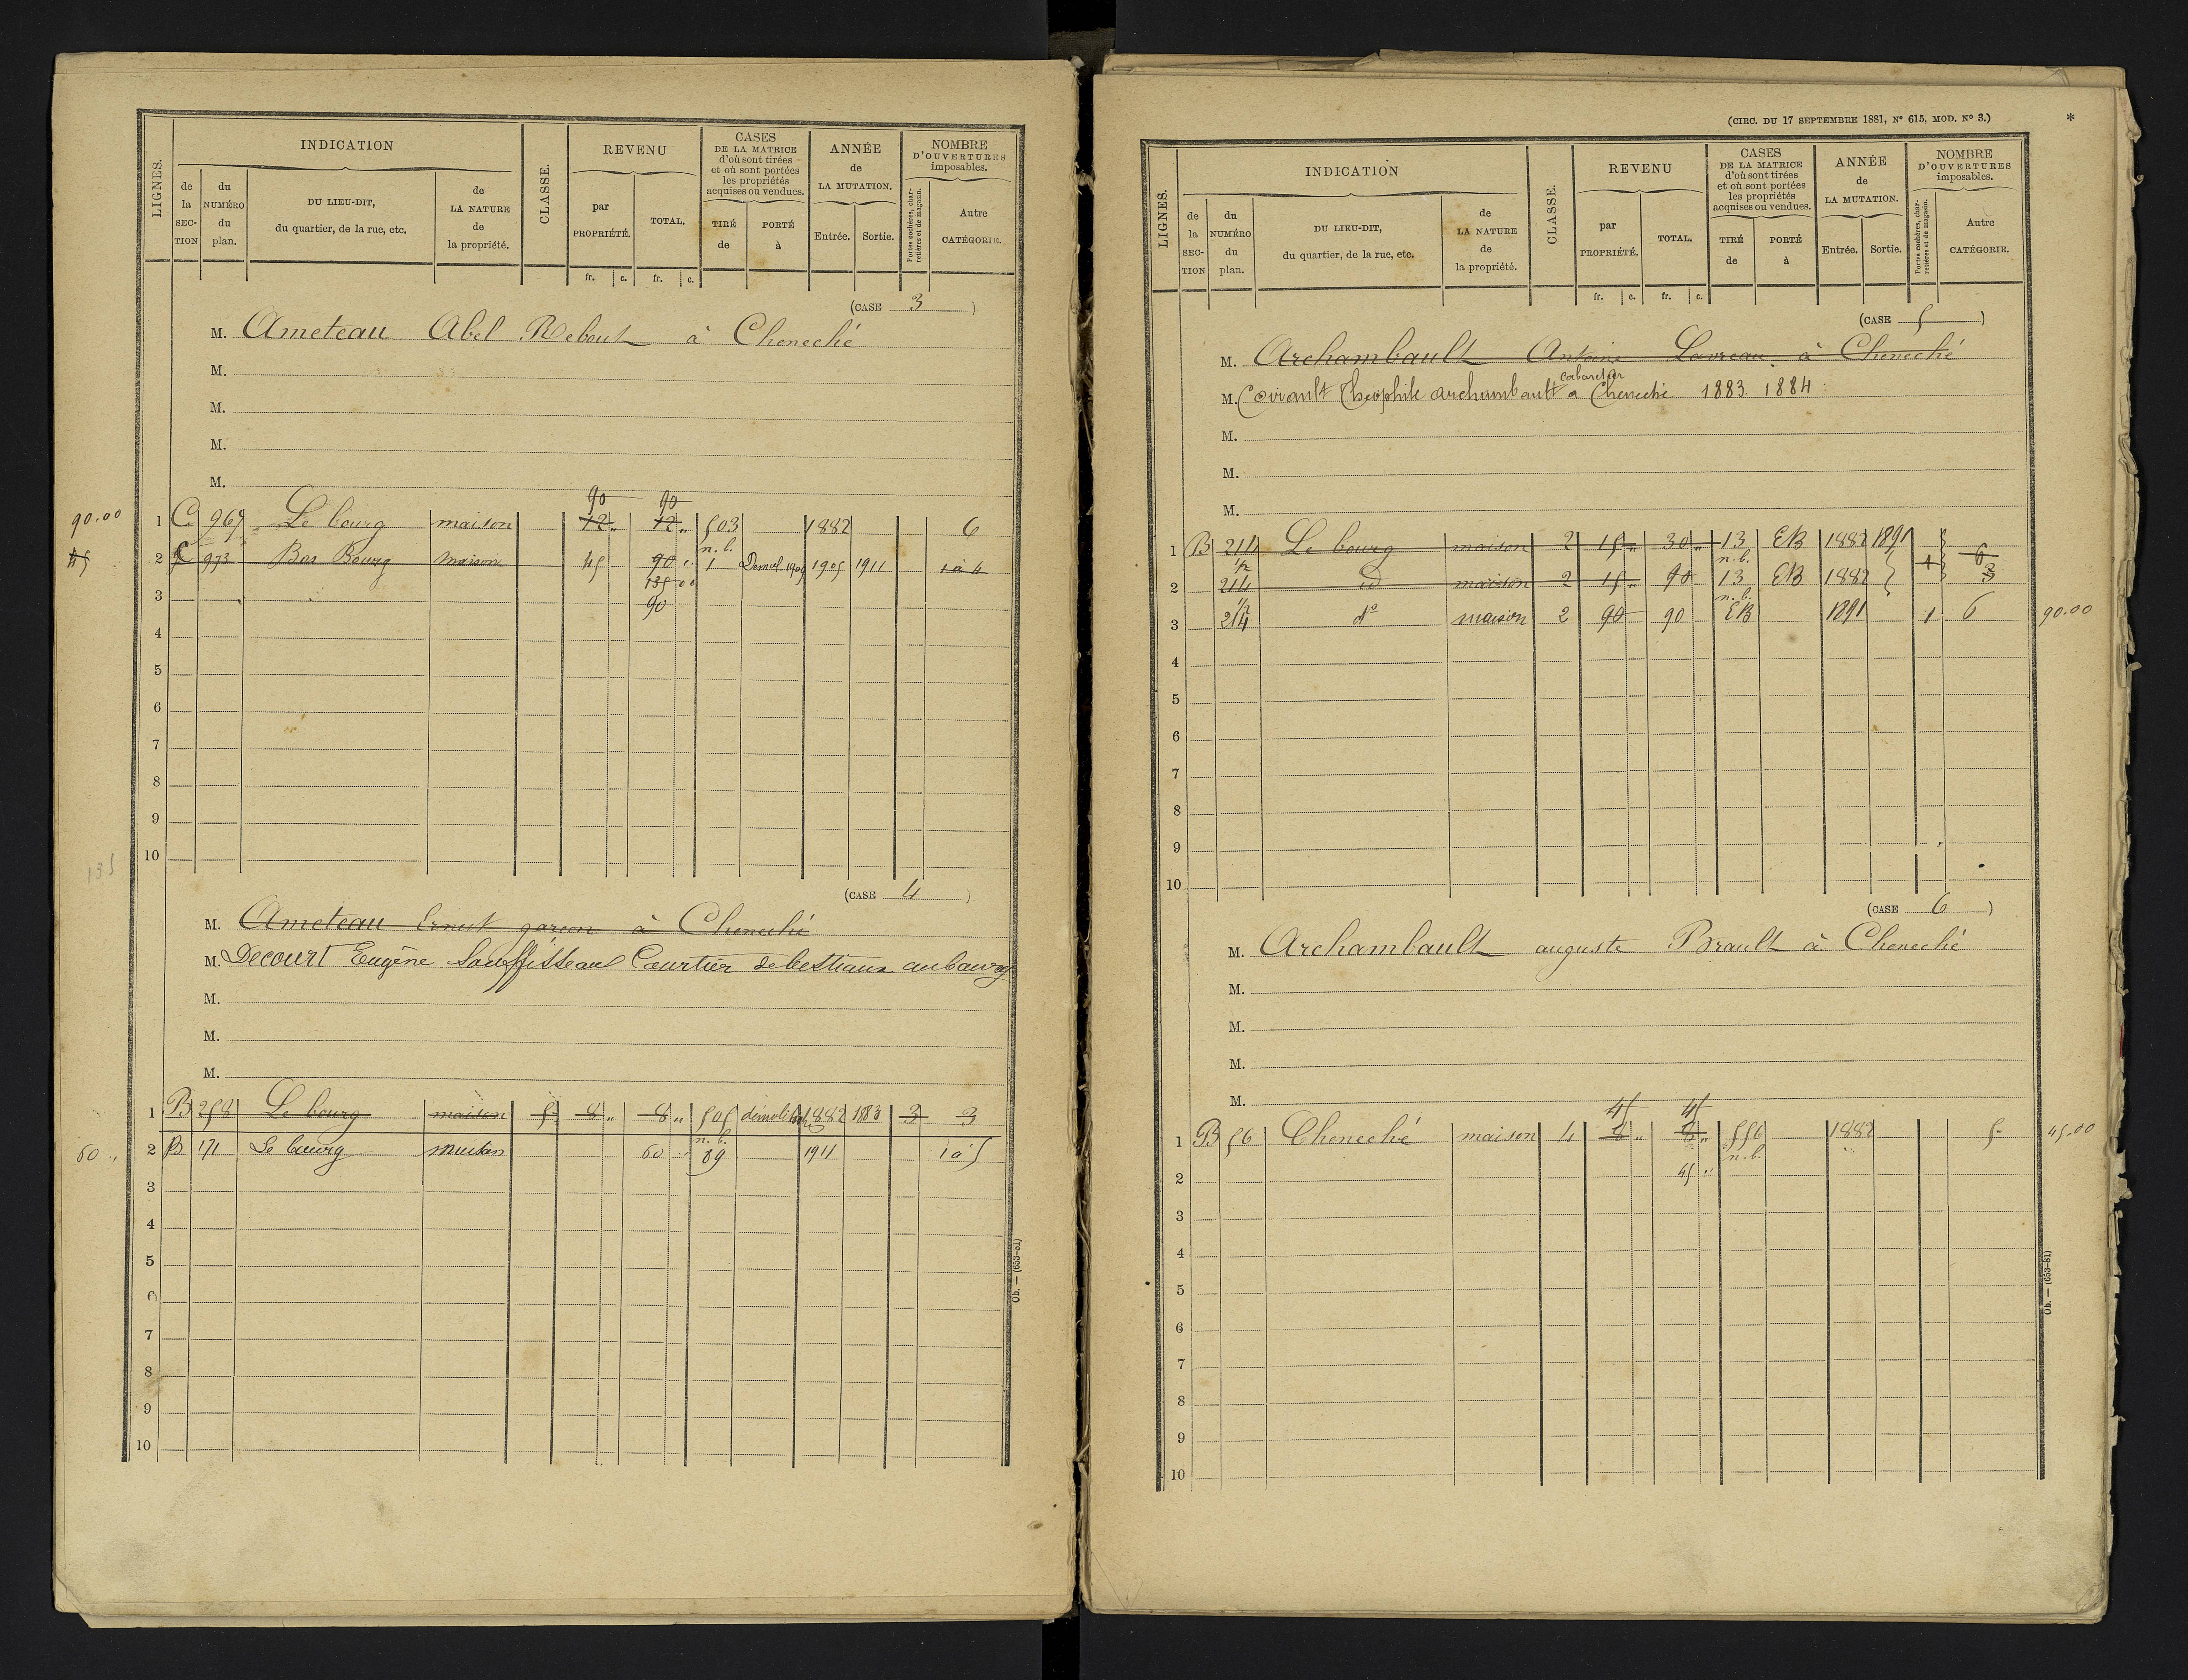 LIGNES.
INDICATION
de la SECTION
du NUMÉRO du plan.
DU LIEU-DIT, du quartier, de la rue, etc.
de LA NATURE de la propriété.
CLASSE.
REVENU
par PROPRIÉTÉ.
TOTAL.
CASES DE LA MATRICE d'où sont tirées et où sont portées les propriétés acquises ou vendues.
TIRÉ de
PORTÉ à
ANNÉE de LA MUTATION.
Entrée. Sortie.
NOMBRE D'OUVERTURES imposables.
Portes cochères, charretières et de magasin.
Autre CATÉGORIE.
fr. c. fr. c.
(CASE 3)
M. Ameteau Abel Rebout à Cheneché
M.
M.
M.
M.
90 90
90.00 1 C 967 Le bourg maison 12 „ 12 „ 503 1882 6
n.b.
45 2 C 973 Bas Bourg maison 45 90 1 Démol. 1909 1905 1911 1 à 4
135 00
3
90
4
5
6
7
8
9
10
135
(CASE 4)
M. Ameteau Ernest garçon à Cheneché
M. Decourt Eugène Souffisseau Courtier de bestiaux au bourg
M.
M.
M.
1 B 258 Le bourg maison 5 8 „ 8 „ 505 démolition 1882 1883 3 3
n.b.
60 „ 2 B 171 Le bourg maison 60 89 1911 1 à 5
3
4
5
6
7
8
9
10
Ob. — (653-81)
(CIRC. DU 17 SEPTEMBRE 1881, N° 615, MOD. N° 3.) *
LIGNES.
INDICATION
de la SECTION
du NUMÉRO du plan.
DU LIEU-DIT, du quartier, de la rue, etc.
de LA NATURE de la propriété.
CLASSE.
REVENU
par PROPRIÉTÉ.
TOTAL.
CASES DE LA MATRICE d'où sont tirées et où sont portées les propriétés acquises ou vendues.
TIRÉ de
PORTÉ à
ANNÉE de LA MUTATION.
Entrée. Sortie.
NOMBRE D'OUVERTURES imposables.
Portes cochères, charretières et de magasin.
Autre CATÉGORIE.
fr. c. fr. c.
(CASE 5)
M. Archambault Antoine à Cheneché
cabaretier
M. Théophile Archambault à Cheneché 1883. 1884
M.
M.
M.
1 B 214 Le bourg maison 2 15 „ 30 „ 13 EB 1882 1891 1 6
1/2 n.b.
2 214 id maison 2 15 „ 90 13 EB 1882 3
1/2 n.b.
3 214 d° maison 2 90 90 EB 1891 1 6 90.00
4
5
6
7
8
9
10
(CASE 6)
M. Archambault auguste Brault à Cheneché
M.
M.
M.
M.
45 45
1 B 56 Cheneché maison 4 8 „ 8 „ 556 1882 5 45.00
n.b.
2 45 „
3
4
5
6
7
8
9
10
Ob. — (653-81)